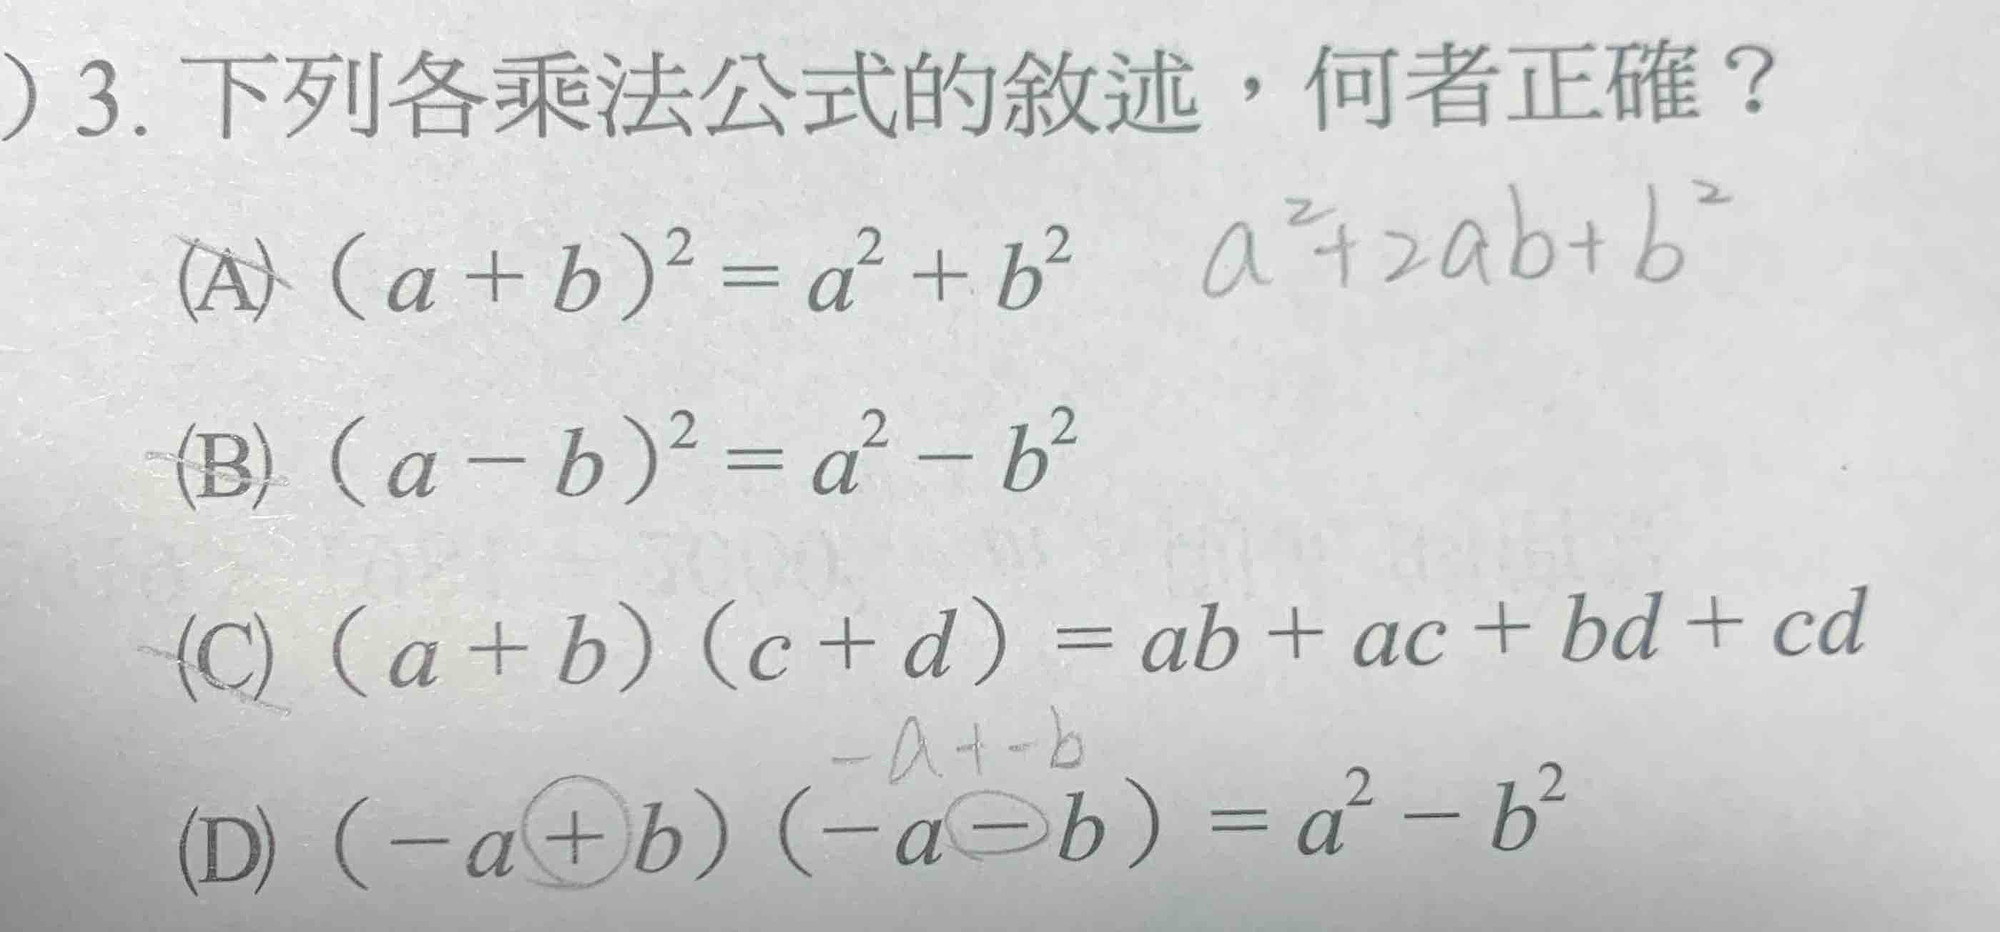 ) 3. 下列各乘法公式的敘述，何者正確？
(A) ( a + b )² = a² + b² a²+2ab+b²
(B) ( a − b )² = a² − b²
(C) ( a + b ) ( c + d ) = ab + ac + bd + cd
-a+-b
(D) ( − a + b ) ( − a − b ) = a² − b²